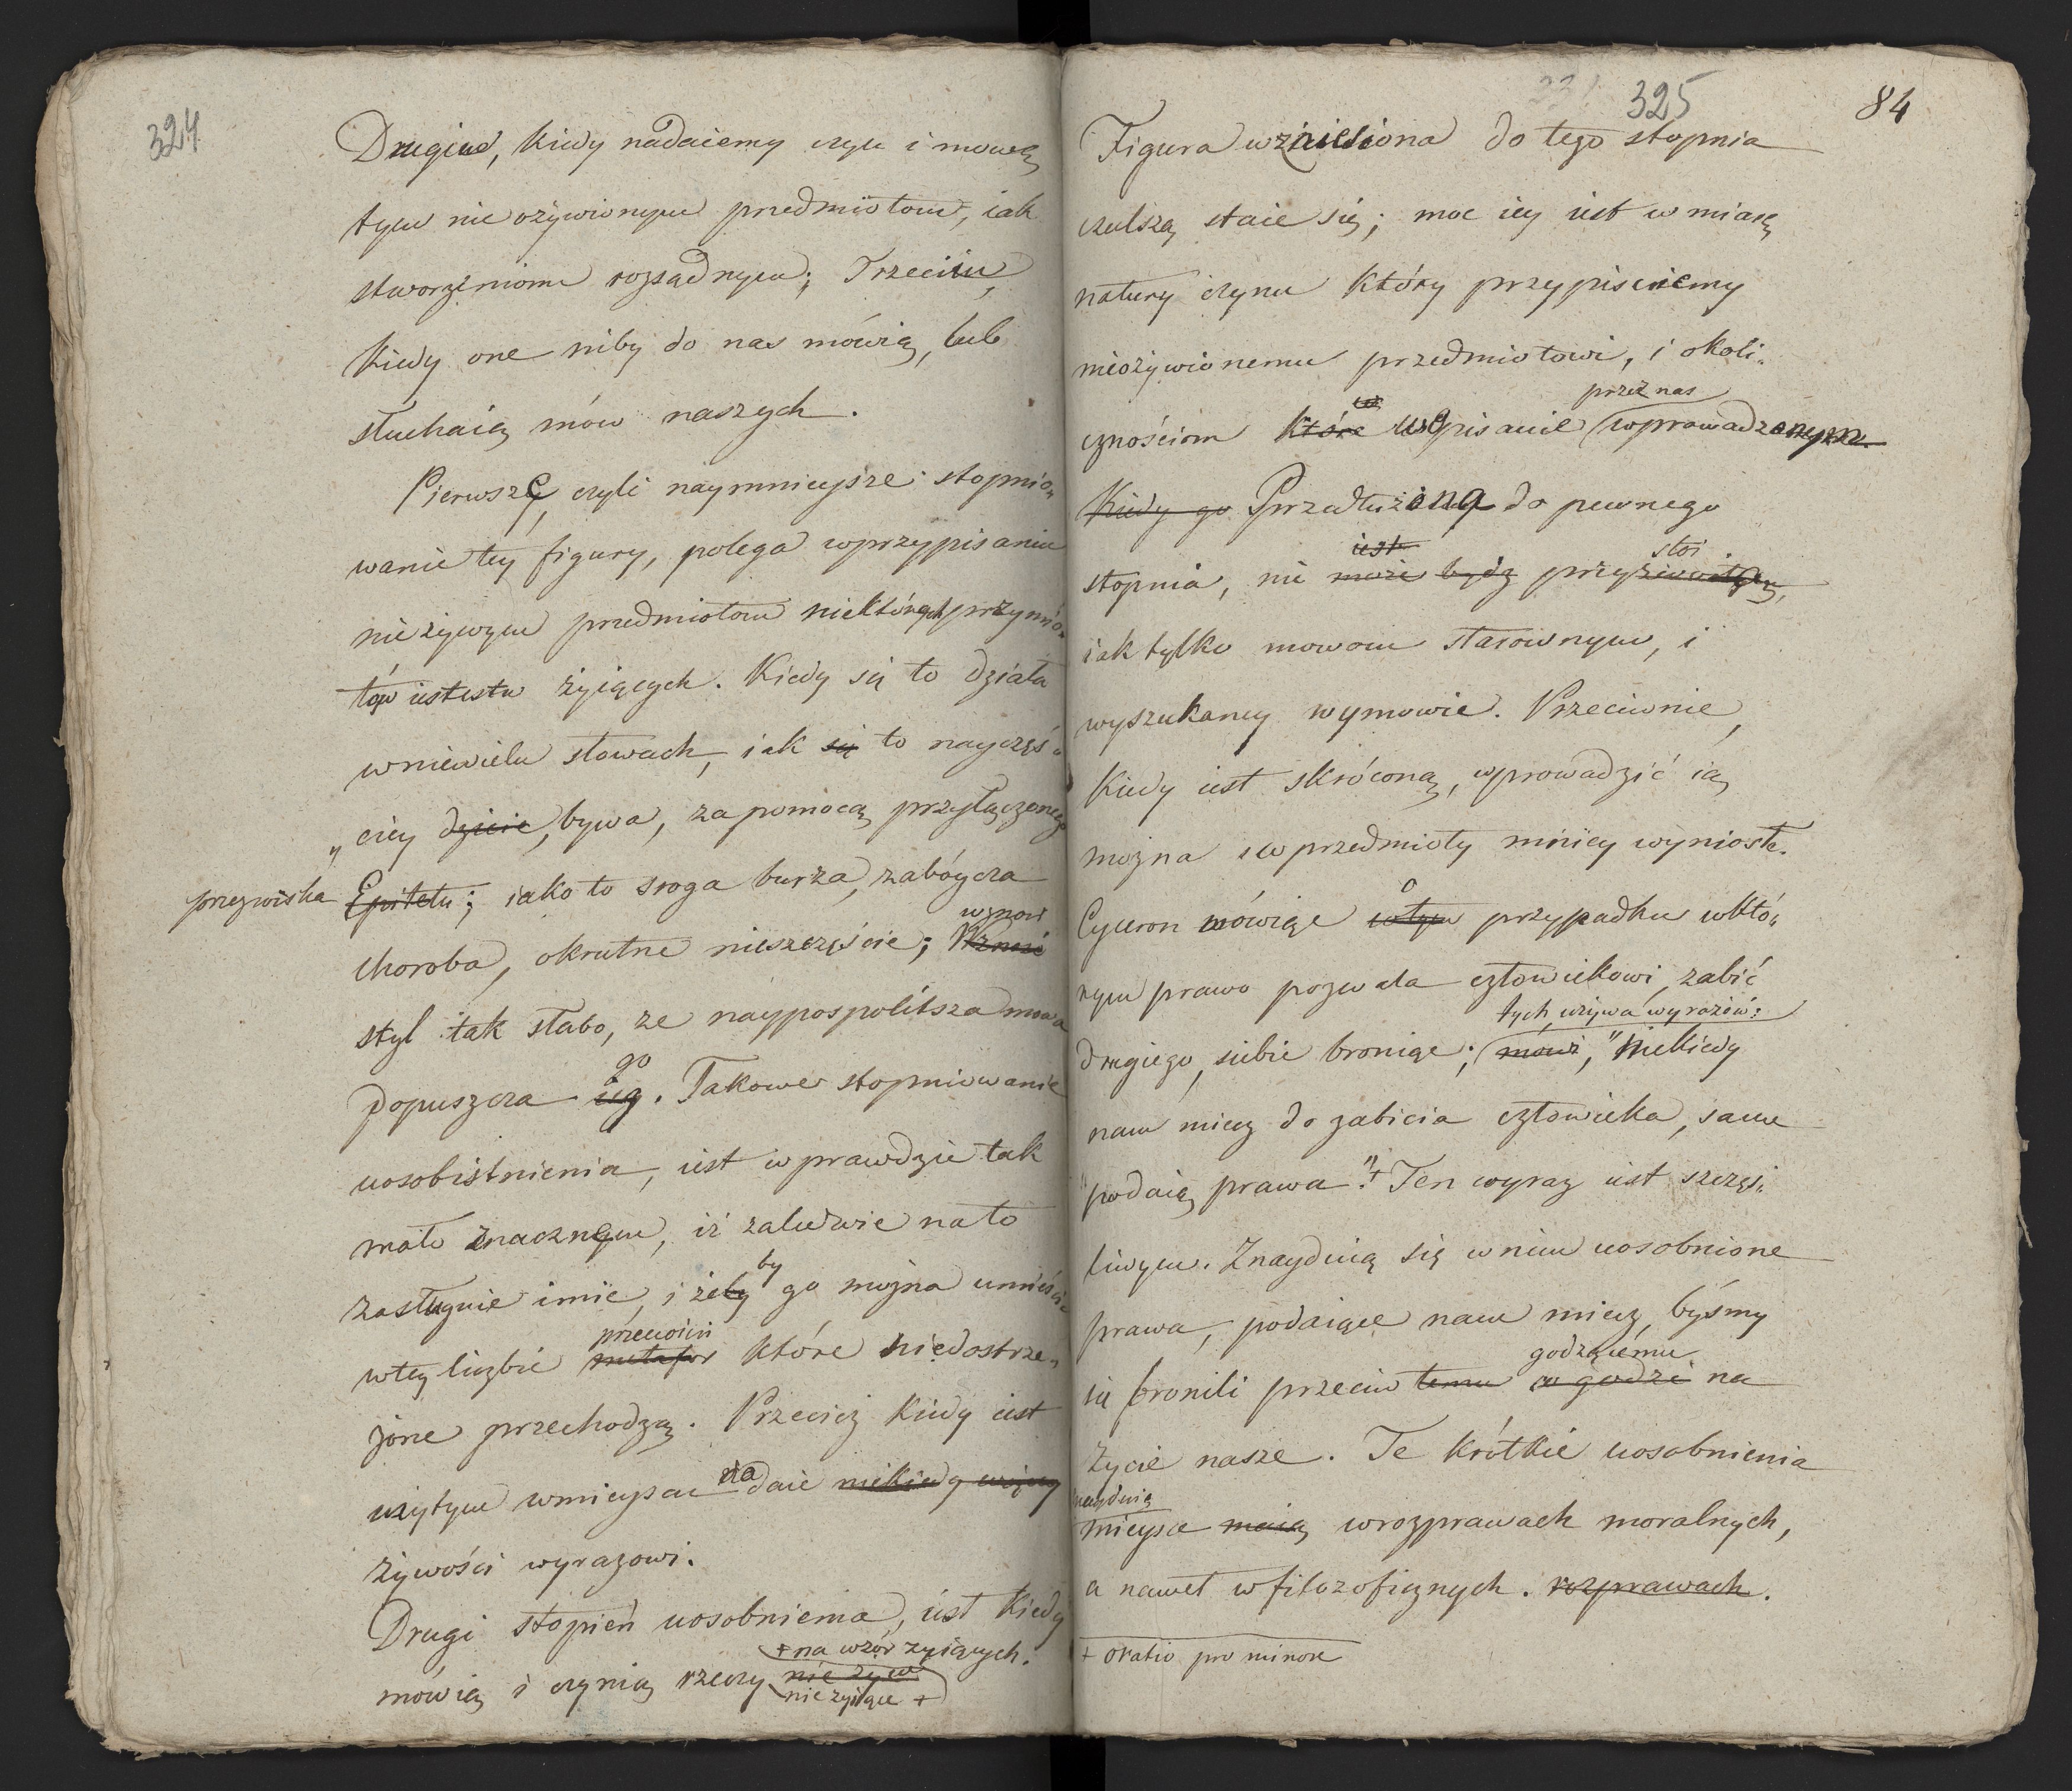 324
Drugim, kiedy nadaiemy czyn i mowę
tym nie ożywionym przedmiotom, iak
stworzeniom rozsądnym; Trzecim,
kiedy one niby do nas mówią, lub
słuchaią mów naszych.
Pierwszę czyli naymnieysze stopnio„
wanie tey figury, polega w przypisaniu
nieżywym przedmiotom niektórych przymio„
tów iestestw żyiących. Kiedy się to działa
w niewielu słowach, iak się to nayczęś„
„ciey dzieie, bywa, za pomocą przyłączonego
przezwiska Epitetu; iako to sroga burza, zabóycza
wznosi
choroba, okrutne nieszczęście; Wznosi
styl tak słabo, że naypospolitsza mowa
go
dopuszcza ią. Takowe stopniowanie
uosobistnienia, iest wprawdzie tak
mało znacznym, iż zaledwie na to
by
zasługuie imie, i żeby go można umieścić
przenośni
w tey liczbie metafor które niedostrze„
żone przechodzą. Przecież kiedy iest
na
użytym w mieyscu daie niekiedy więcey
żywości wyrazowi.
Drugi stopień uosobnienia, iest kiedy
+ na wzór żyiących.
mówią i czynią rzeczy nie żywe
nie żyiące +
325
84
Figura wzniesiona do tego stopnia
czulszą staie się; moc iey iest w miarę
natury czynu który przypisuiemy
nieożywionemu przedmiotowi, i okoli„
w przez nas
cznościom które w opisanie wprowadzonym.
Kiedy go Przedłużona do pewnego
iest stoi
stopnia, nie może bydź przyzwoitszą,
iak tylko mowom starownym, i
wyszukaney wymowie. Przeciwnie,
kiedy iest skróconą, wprowadzić ią
można i w przedmioty mniey wyniosłe.
o
Cyceron mówiąc w tym przypadku w któ„
rym prawo pozwala człowiekowi zabić
tych używa wyrazów:
drugiego, siebie broniąc; mówi, „Niekiedy
nam miecz do zabicia człowieka, same
"podaią prawa".+ Ten wyraz iest szczęś„
liwym. Znayduią się w nim uosobnione
prawa, podaiące nam miecz, byśmy
godzącemu
się bronili przeciw temu co godzi na
życie nasze. Te krótkie uosobnienia
znayduią
mieysce maią w rozprawach moralnych,
a nawet w filozoficznych. rozprawach.
+ oratio pro minore